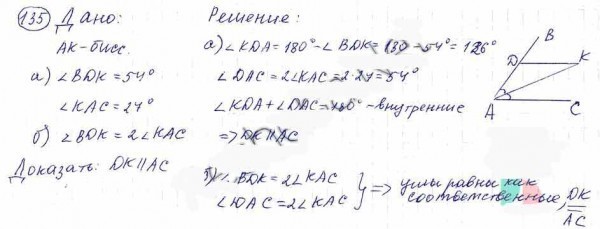 135 Дано:
АК-бисс.
а) ∠BDK = 54°
∠KAC = 27°
б) ∠BDK = 2∠KAC
Доказать: DK∥AC
Решение:
а) ∠KDA = 180° - ∠BDK = 180 - 54° = 126°
∠DAC = 2∠KAC = 2·27 = 54°
∠KDA + ∠DAC = 180° - внутренние
=> DK∥AC
б) ∠BDK = 2∠KAC
∠DAC = 2∠KAC
} => углы равны как
соответственные, DK
AC
B
D
K
A
C